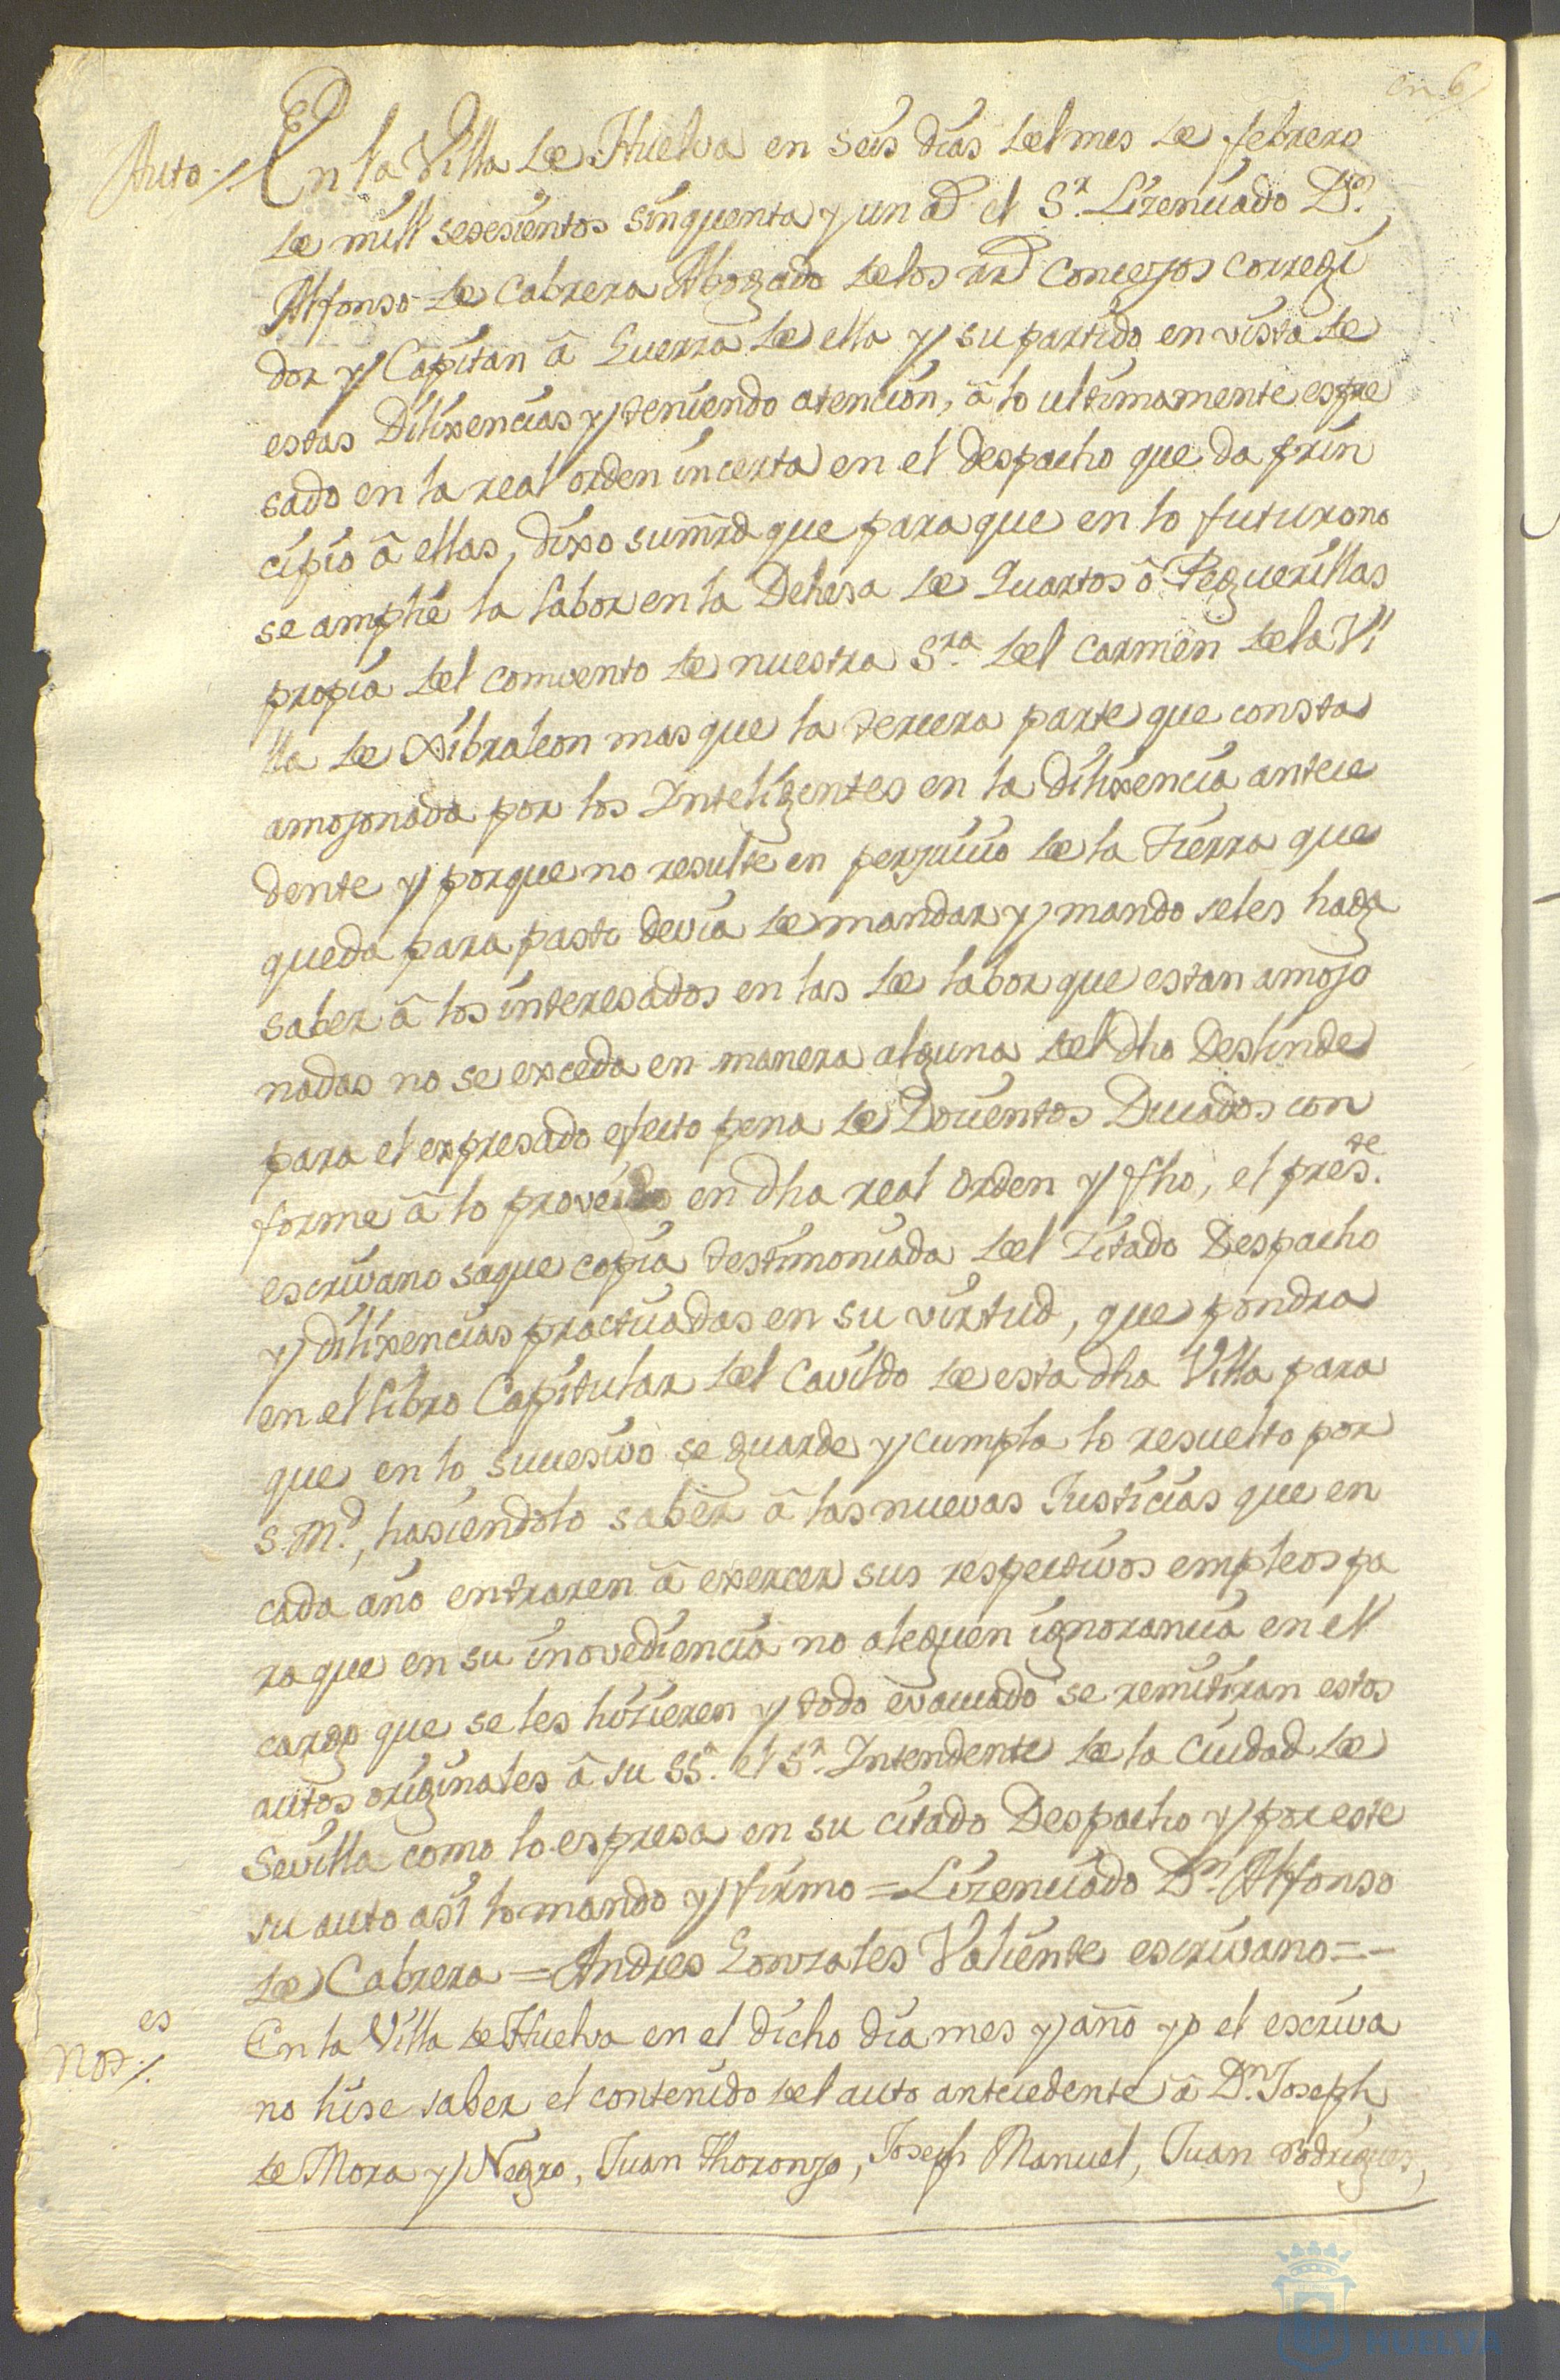 en 6
Auto //. En la Villa de Huelva en seis dias del mes de febrero
de mill setesientos sinquenta y un a.s el S.r Lizenciado D.n
Alfonso de Cabrera Abogado de los r.s Concejos corregi
dor y Capitan â Guerra de ella y su partido en vista de
estas Dilixencias y teniendo atencion, â lo ultimamente espre
sado en la real orden incerta en el despacho que da prin
cipio â ellas, dixo su mrd que para que en lo futuro no
se amplie la labor en la Dehesa de Quartos ô Peguerillas
propia del comvento de nuestra S.ra del Carmen de la Vi
lla de Xibraleon mas que la tercera parte que consta
amojonada por los Inteligentes en la dilixencia antece
dente y porque no resulte en perjuicio de la tierra que
queda para pasto devia de mandar y mando se les haga
saber â los interesados en las de labor que estan amojo
nadas no se exceda en manera alguna del dho Deslinde
para el expresado efecto pena de Docientos Ducados con
forme â lo proveido en dha real Orden y fho, el pres.te
escrivano saque copia testimoniada del Zitado Despacho
y dilixencias practicadas en su virtud, que pondra
en el libro Capitular del Cavildo de esta dha Villa para
que en lo sucesivo se guarde y cumpla lo resuelto por
S.M.d, hasiendolo saber â las nuevas Justicias que en
cada año entraren â exercer sus respectivos empleos pa
ra que en su inovediencia no aleguen ignorancia en el
cargo que se les hizieren y todo evacuado se remitiran estos
autos originales â su SS.a el S.r Intendente de la Ciudad de
Sevilla como lo espresa en su citado Despacho y por este
su auto asi lo mando y firmo = Lizenciado D.n Alfonso
de Cabrera = Andres Gonzales Valiente escrivano = -
Not.es //. En la Villa de Huelva en el dicho dia mes y año yo el escriva
no hise saber el contenido del auto antecedente â D.n Joseph
de Mora y Negro, Juan Thoronjo, Joseph Manuel, Juan Rodrigues,
HUELVA